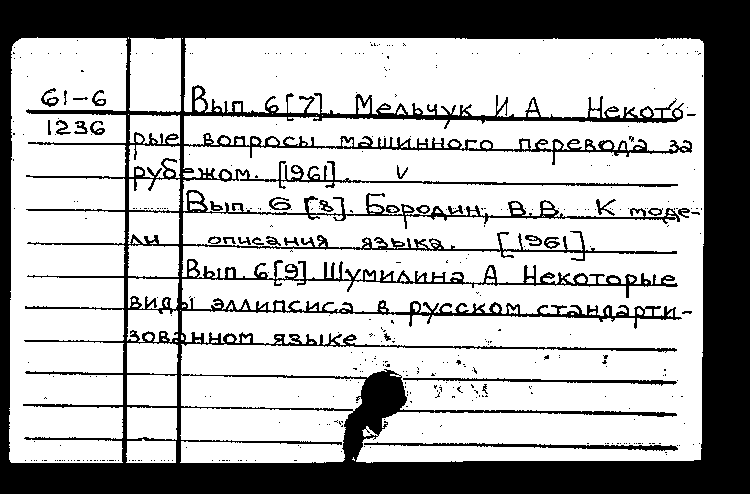 61-6 Вып. 6[7]. Мельчук, И. А. Некото-
1236 рые вопросы машинного перевода за
рубежом. [1961]. V
Вып. 6 [8]. Бородин, В.В. К моде-
ли описания языка. [1961].
Вып. 6[9]. Шумилина, А. Некоторые
виды эллипсиса в русском стандарти-
зованном языке